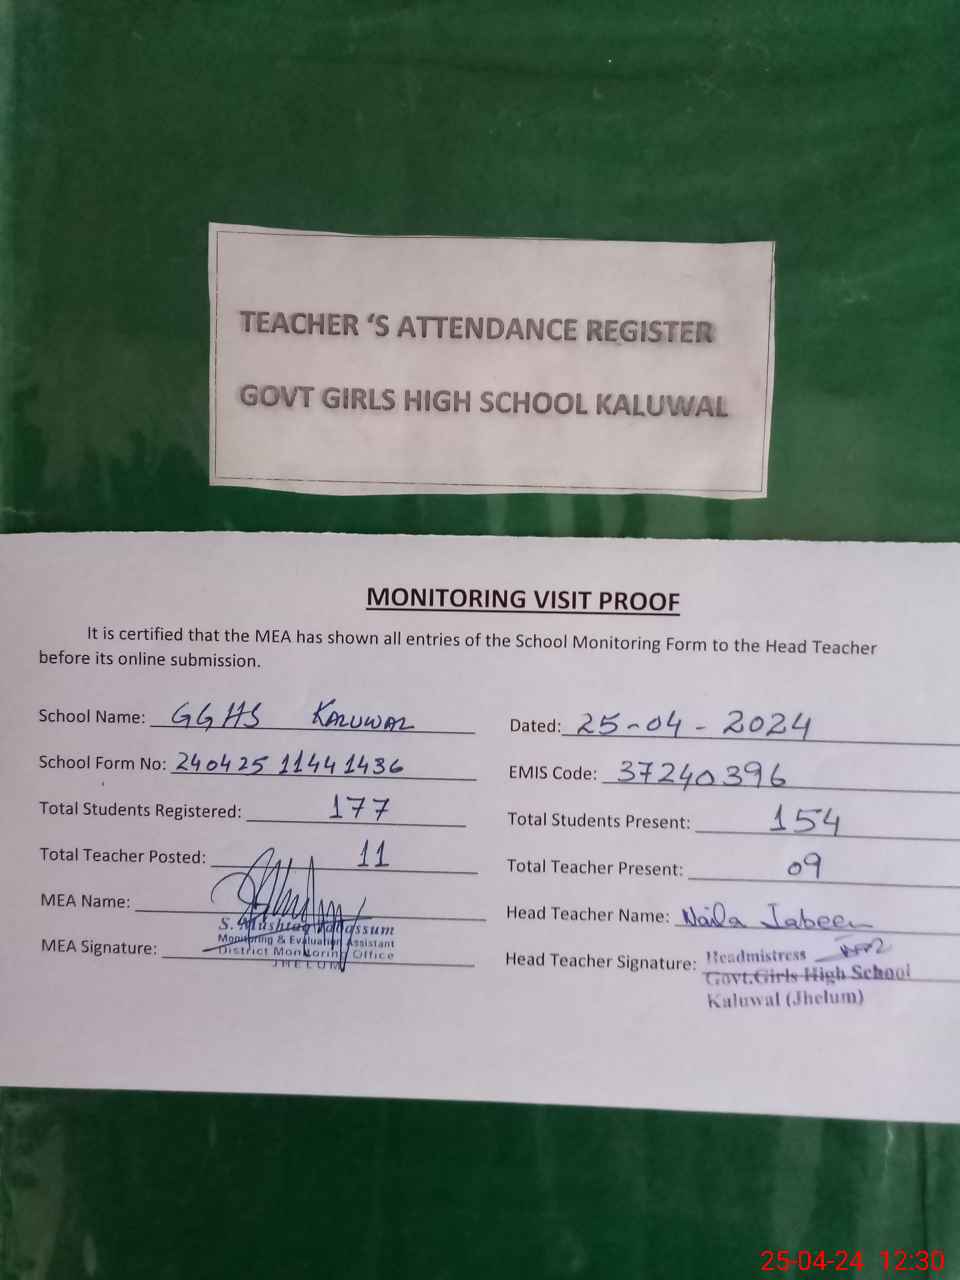 TEACHER 'S ATTENDANCE REGISTER
GOVT GIRLS HIGH SCHOOL KALUWAL
MONITORING VISIT PROOF
It is certified that the MEA has shown all entries of the School Monitoring Form to the Head Teacher
before its online submission.
School Name: GGHS KALUWAL
Dated: 25-04-2024
School Form No: 240425 11441436
EMIS Code: 37240396
Total Students Registered: 177
Total Students Present: 154
Total Teacher Posted: 11
Total Teacher Present: 09
MEA Name:
Head Teacher Name: Naila Jabeen
MEA Signature:
S. Mushtaq Tabassum
Monitoring & Evaluation Assistant
District Monitoring Office
JHELUM
Head Teacher Signature: Headmistress
Govt.Girls High School
Kaluwal (Jhelum)
25-04-24 12:30